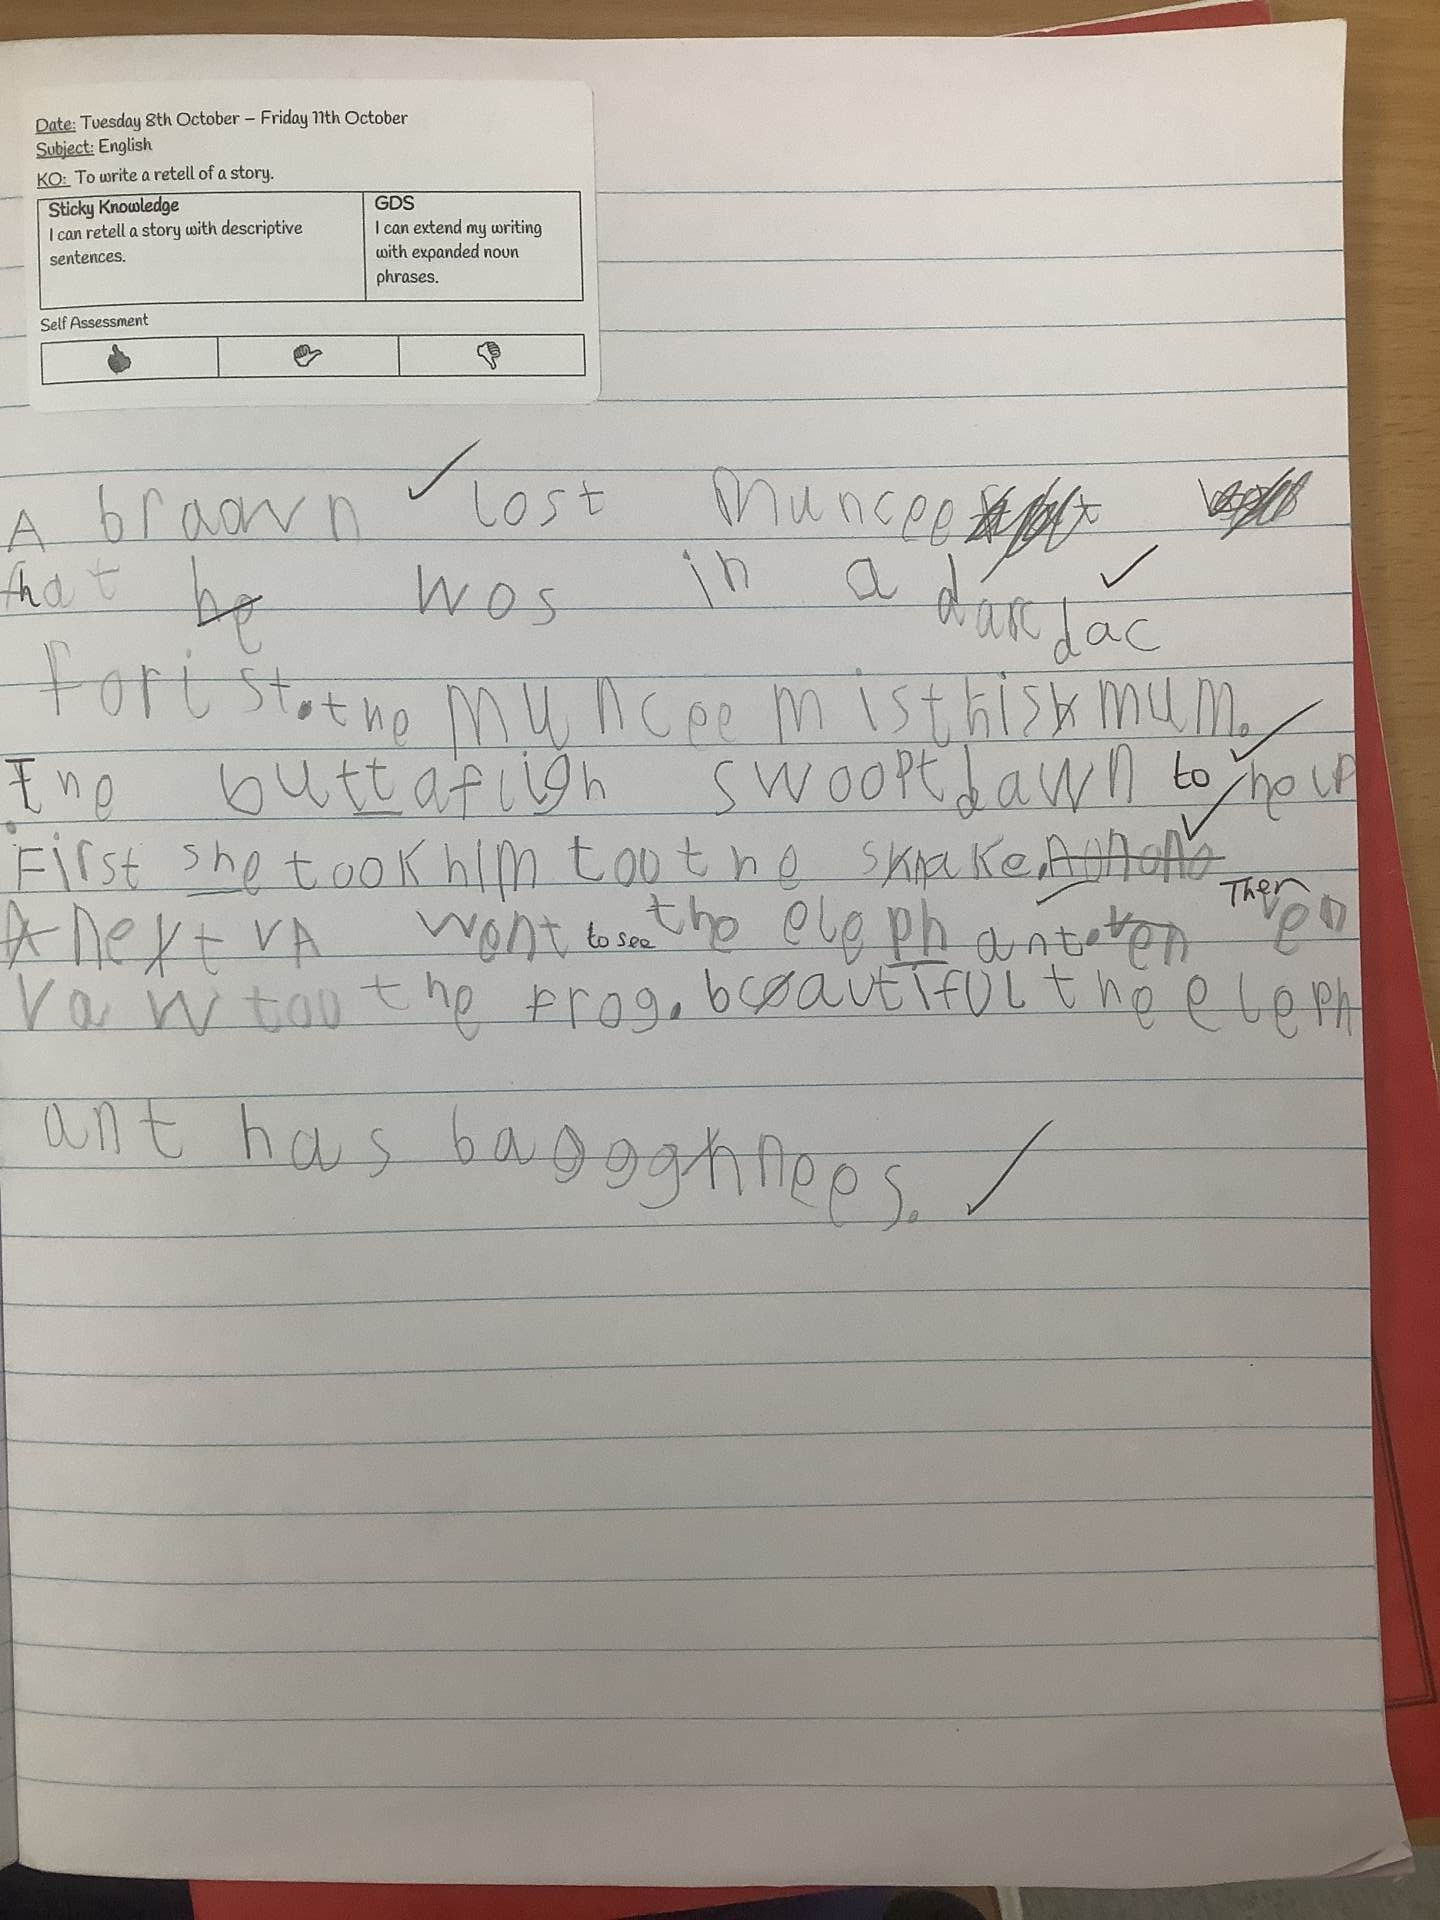 Date: Tuesday 8th October – Friday 11th October
Subject: English
KO: To write a retell of a story.
Sticky Knowledge
I can retell a story with descriptive
sentences.
GDS
I can extend my writing
with expanded noun
phrases.
Self Assessment
A braown lost muncee
that he wos in a darc dac
forist. the muncee mist his mum.
The buttafligh swoopt dawn to help
First she took him too the snake.
A next va went to see the elephant. ven Then ven
va w too the frog. beautiful the eleph
ant has baggghnees.